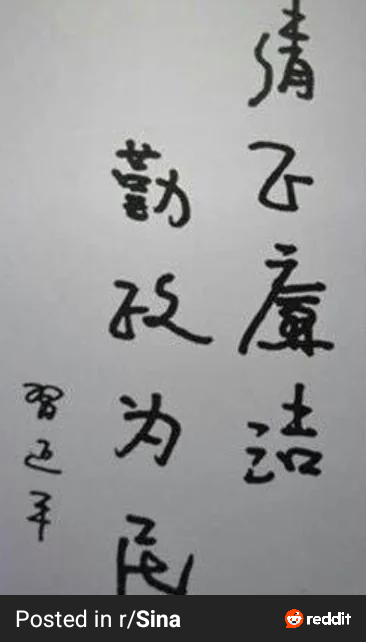 清正廉洁
勤政为民
習近平
Posted in r/Sina
reddit